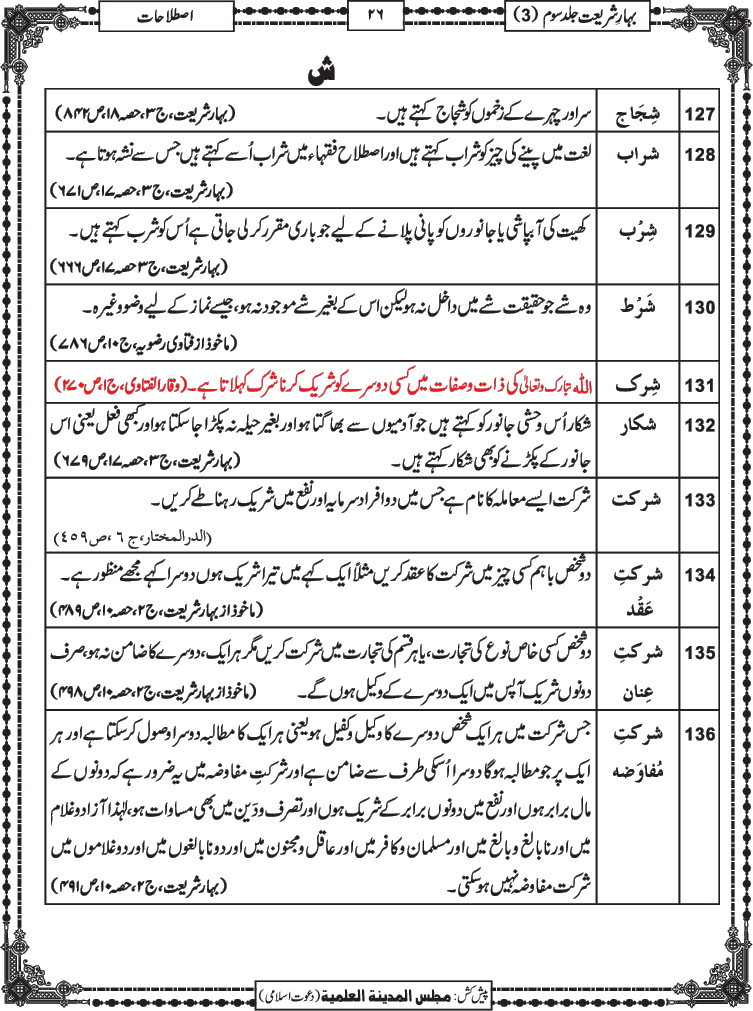 بہارِ شریعت جلد سوم (3)
۲۶
اصطلاحات
ش
127 شِجَاج سر اور چہرے کے زخموں کو شجاج کہتے ہیں۔ (بہارِ شریعت، ج۳، حصہ ۱۸، ص۸۴۲)
128 شراب لغت میں پینے کی چیز کو شراب کہتے ہیں اور اصطلاح فقہاء میں شراب اُسے کہتے ہیں جس سے نشہ ہوتا ہے۔
(بہارِ شریعت، ج۳، حصہ ۱۷، ص۶۷۱)
129 شِرْب کھیت کی آبپاشی یا جانوروں کو پانی پلانے کے لیے جو باری مقرر کر لی جاتی ہے اُس کو شرب کہتے ہیں۔
(بہارِ شریعت، ج۳ حصہ ۱۷، ص۶۶۶)
130 شَرْط وہ شے جو حقیقت شے میں داخل نہ ہو لیکن اس کے بغیر شے موجود نہ ہو، جیسے نماز کے لیے وضو وغیرہ۔
(ماخوذ از فتاوی رضویہ، ج۱۰، ص۷۸۶)
131 شِرک اللہ تبارک وتعالیٰ کی ذات وصفات میں کسی دوسرے کو شریک کرنا شرک کہلاتا ہے۔ (وقار الفتاوی، ج۱، ص۲۷۰)
132 شکار شکار اُس وحشی جانور کو کہتے ہیں جو آدمیوں سے بھاگتا ہو اور بغیر حیلہ نہ پکڑا جا سکتا ہو اور کبھی فعل یعنی اس
جانور کے پکڑنے کو بھی شکار کہتے ہیں۔ (بہارِ شریعت، ج۳، حصہ ۱۷، ص۶۷۹)
133 شرکت شرکت ایسے معاملہ کا نام ہے جس میں دو افراد سرمایہ اور نفع میں شریک رہنا طے کریں۔
(الدرالمختار، ج ٦، ص ٤٥٩)
134 شرکتِ دو شخص باہم کسی چیز میں شرکت کا عقد کریں مثلاً ایک کہے میں تیرا شریک ہوں دوسرا کہے مجھے منظور ہے۔
عَقْد (ماخوذ از بہارِ شریعت، ج۲، حصہ ۱۰، ص۴۸۹)
135 شرکتِ دو شخص کسی خاص نوع کی تجارت، یا ہر قسم کی تجارت میں شرکت کریں مگر ہر ایک، دوسرے کا ضامن نہ ہو، صرف
عِنان دونوں شریک آپس میں ایک دوسرے کے وکیل ہوں گے۔ (ماخوذ از بہارِ شریعت، ج۲، حصہ ۱۰، ص۴۹۸)
136 شرکتِ جس شرکت میں ہر ایک شخص دوسرے کا وکیل وکفیل ہو یعنی ہر ایک کا مطالبہ دوسرا وصول کر سکتا ہے اور ہر
مُفاوَضہ ایک پر جو مطالبہ ہوگا دوسرا اُسکی طرف سے ضامن ہے اور شرکتِ مفاوضہ میں یہ ضرور ہے کہ دونوں کے
مال برابر ہوں اور نفع میں دونوں برابر کے شریک ہوں اور تصرف ودَین میں بھی مساوات ہو، لہٰذا آزاد وغلام
میں اور نابالغ وبالغ میں اور مسلمان وکافر میں اور عاقل ومجنون میں اور دو نابالغوں میں اور دو غلاموں میں
شرکت مفاوضہ نہیں ہو سکتی۔ (بہارِ شریعت، ج۲، حصہ ۱۰، ص۴۹۱)
پیش کش: مجلس المدینة العلمیة (دعوت اسلامی)